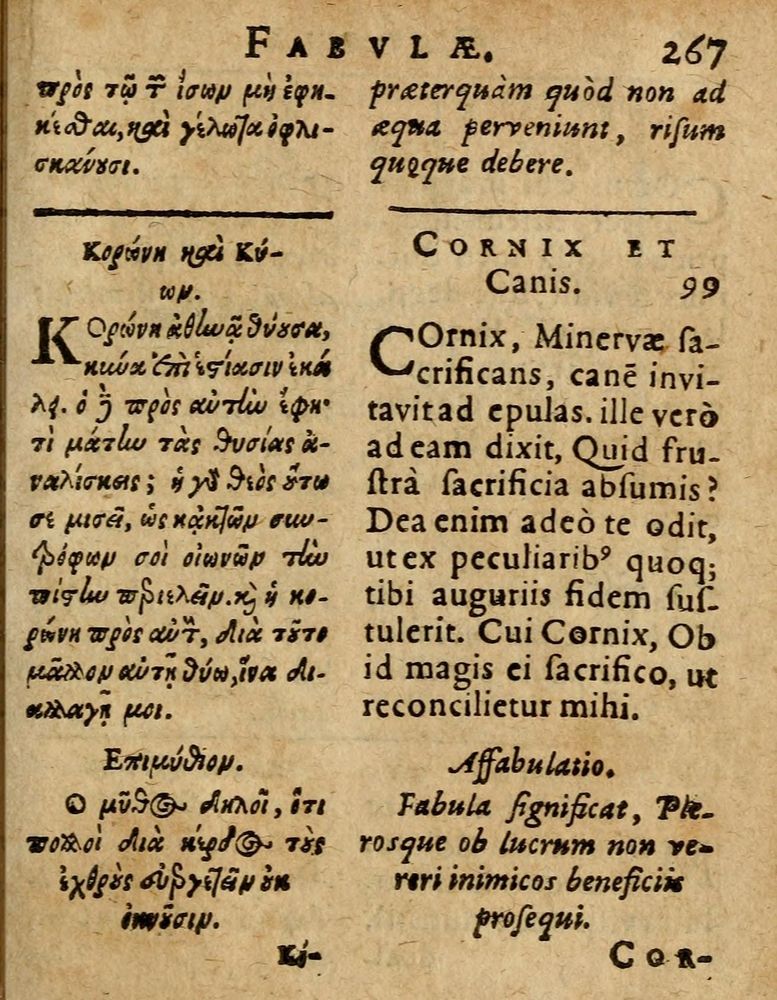 FABVLÆ. 267
πρὸς τῷ τῶν ἴσων μὴ ἐφι-
κέσθαι, καὶ γέλωτα ὀφλι-
σκάνουσι.
Κορώνη καὶ Κύ-
ων.
ΚΟρώνη ἀθηνᾷ θύουσα,
κύνα ἐπὶ ἑστίασιν ἐκά
λει. ὁ δὲ πρὸς αὐτὴν ἔφη·
τί μάτην τὰς θυσίας ἀ-
ναλίσκεις; ἡ γὰρ θεὸς οὕτω
σε μισεῖ, ὡς κἀκ τῶν συν-
τρόφων σοι οἰωνῶν τὴν
πίστιν περιελεῖν. καὶ ἡ κο-
ρώνη πρὸς αὐτὸν, διὰ τοῦτο
μᾶλλον αὐτῇ θύω, ἵνα δι-
αλλαγῇ μοι.
Επιμύθιον.
Ο μῦθος δηλοῖ, ὅτι
πολλοὶ διὰ κέρδος τοὺς
ἐχθροὺς εὐεργετεῖν οὐκ
ὀκνοῦσιν.
Κό-
præterquàm quòd non ad
æqua perveniunt, riſum
quoque debere.
CORNIX ET
Canis. 99
COrnix, Minervæ ſa-
crificans, canē invi-
tavit ad epulas. ille verò
ad eam dixit, Quid fru-
ſtrà ſacrificia abſumis?
Dea enim adeò te odit,
ut ex peculiarib⁹ quoq;
tibi auguriis fidem ſuſ-
tulerit. Cui Cornix, Ob
id magis ei ſacrifico, ut
reconcilietur mihi.
Affabulatio.
Fabula ſignificat, Ple-
rosque ob lucrum non ve-
reri inimicos beneficiis
proſequi.
COR-